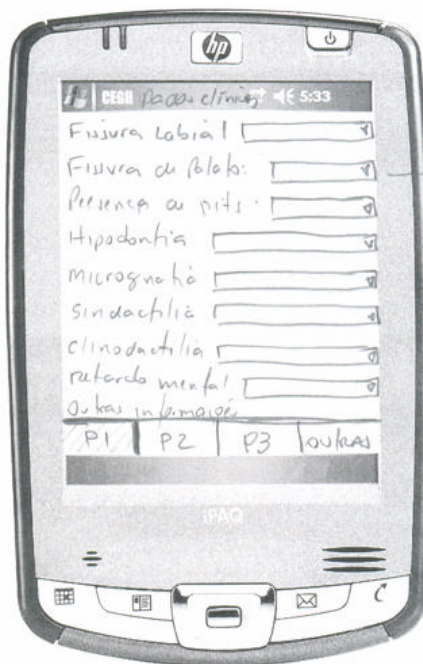 hp
CEGH Dados clínicos 5:33
Fissura Labial
Fissura de Palato:
Presença de pits:
Hipodontia
micrognatia
Sindactilia
Clinodactilia
retardo mental
Outras informações
P1 P2 P3 OUTRAS
iPAQ